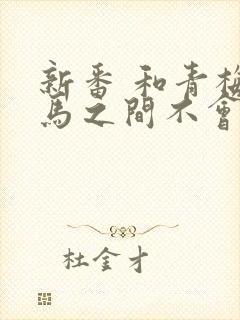 新番 和青梅
馬之間不會
杜金才